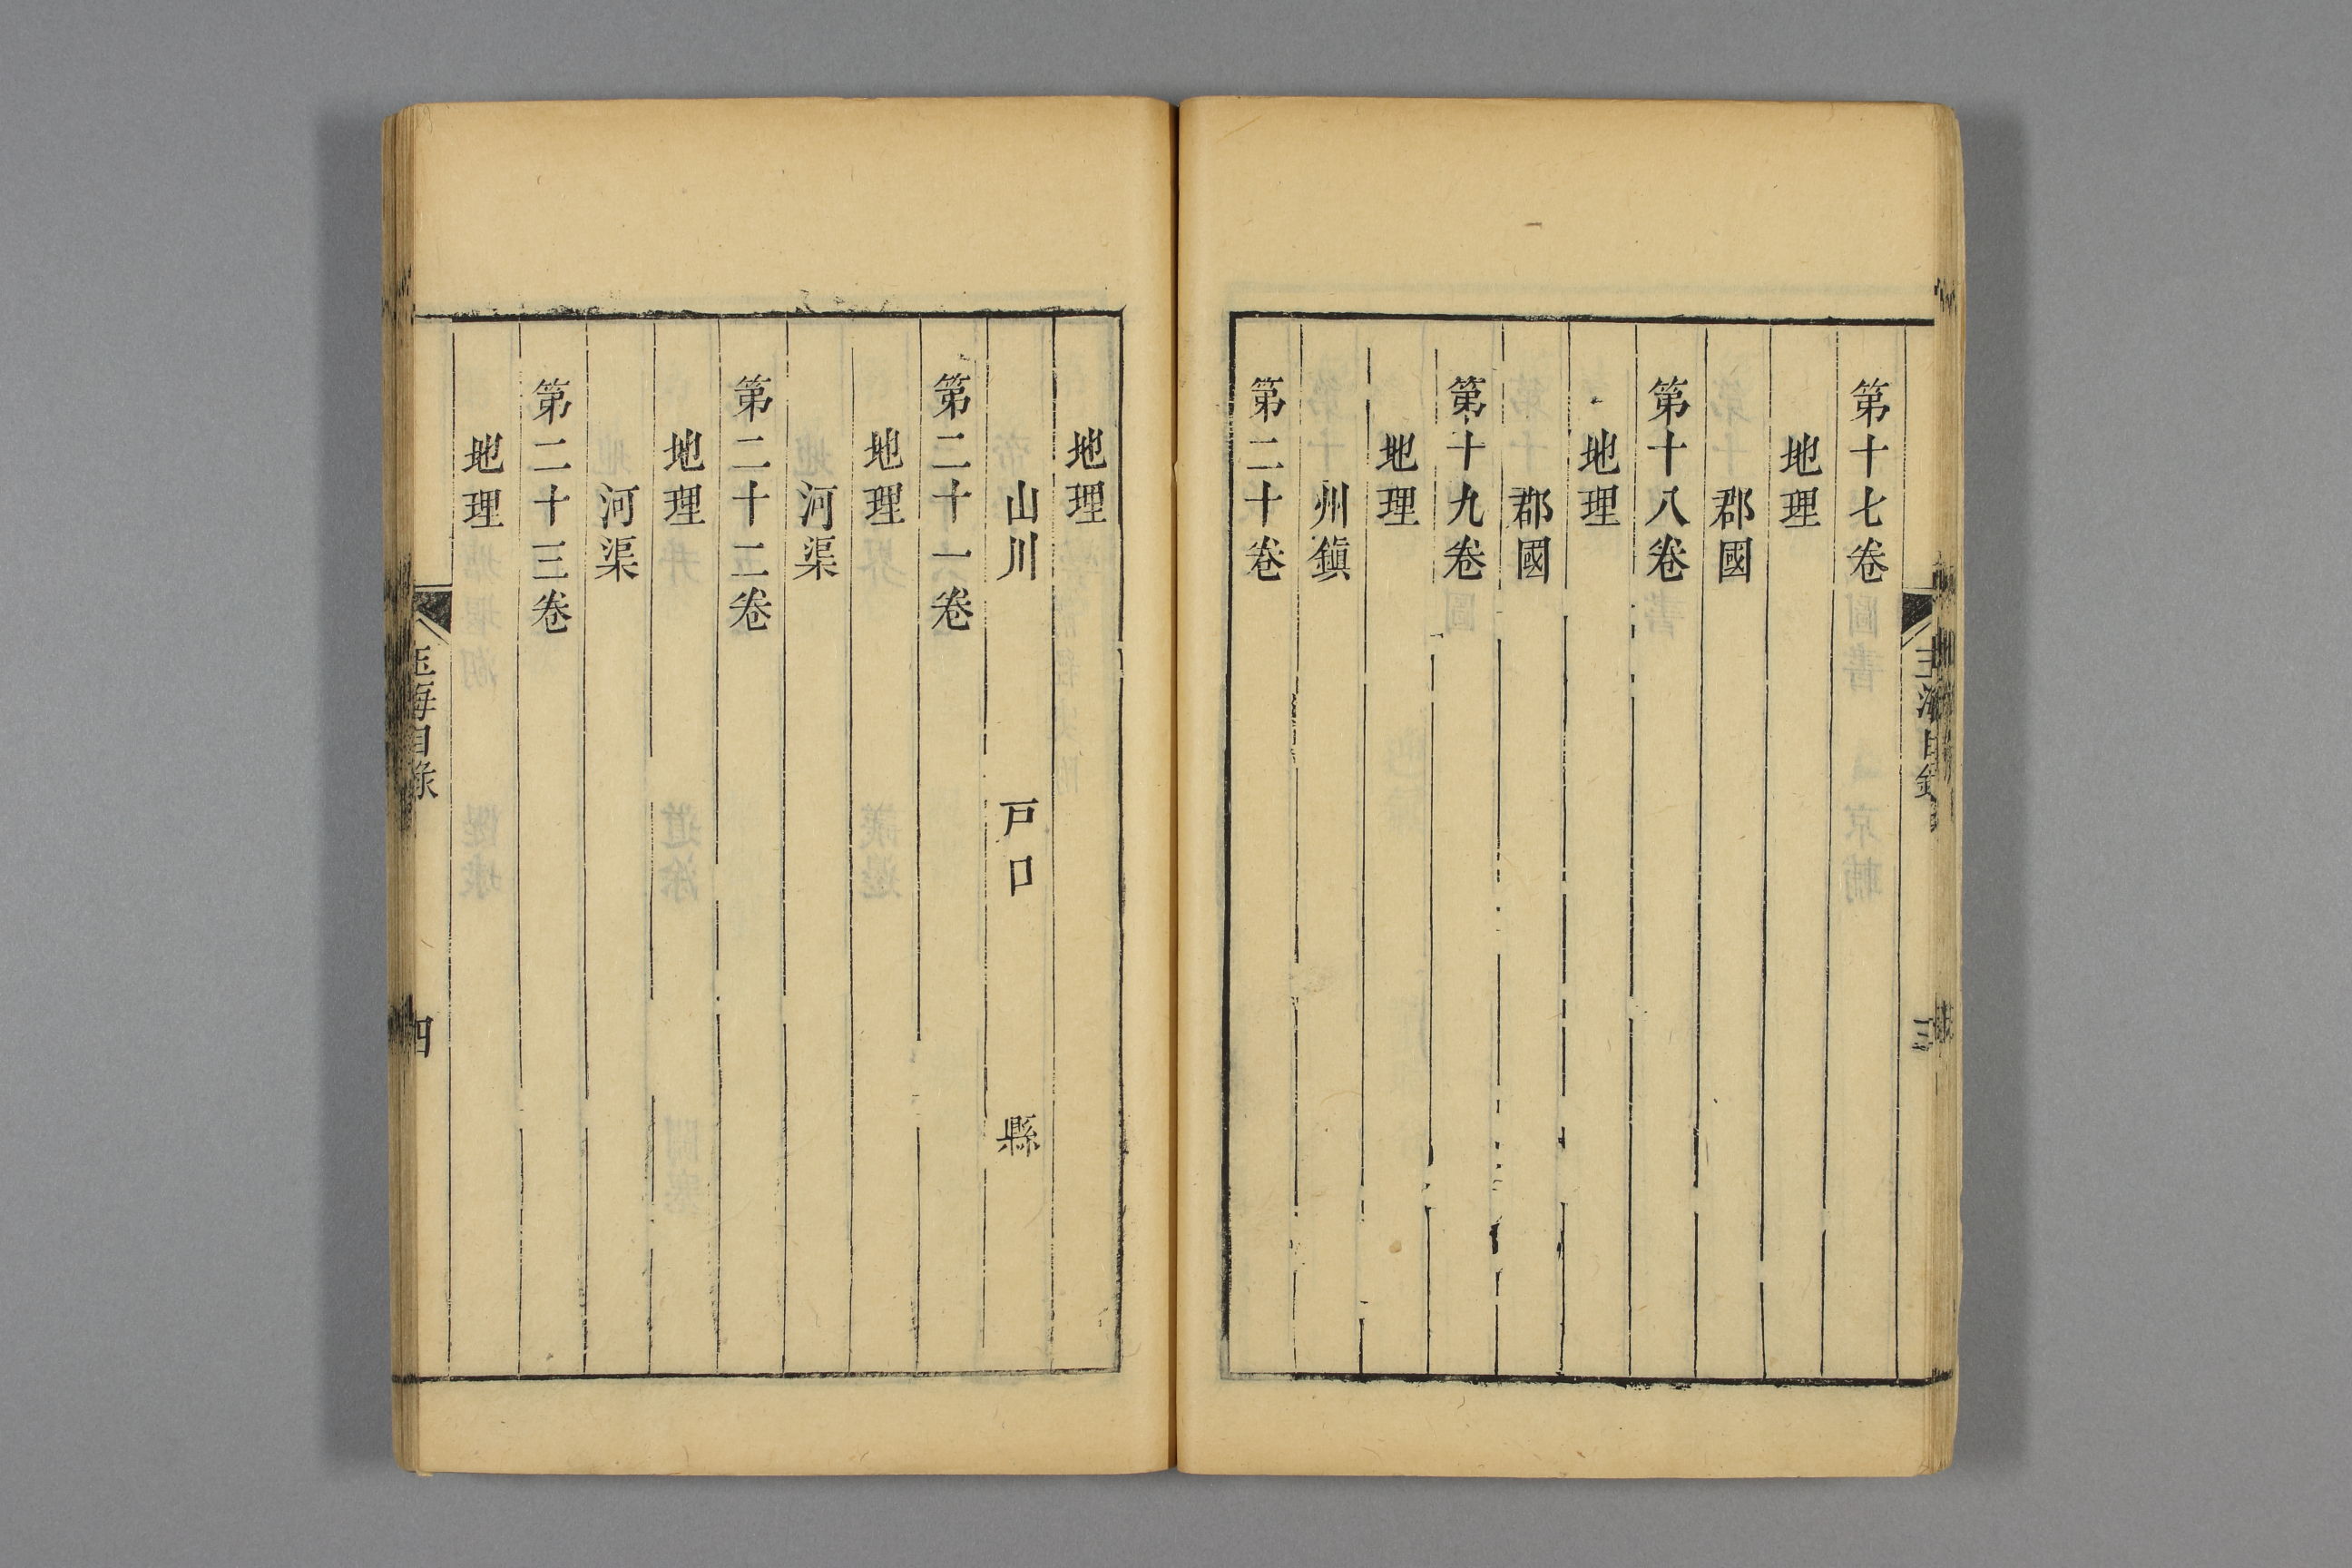 第十七卷
地理
郡國
第十八卷
地理
郡國
第十九卷
地理
州鎮
第二十卷
地理
山川 戸口 縣
第二十一卷
地理
河渠
第二十二卷
地理
河渠
第二十三卷
地理
玉海目錄
三
玉海目錄
四